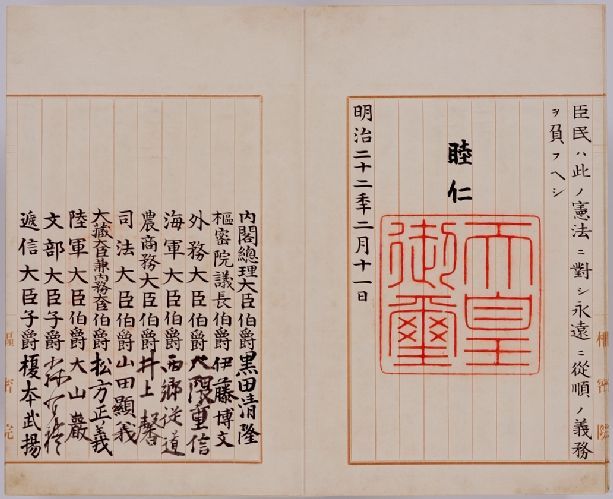 臣民ハ此ノ憲法ニ對シ永遠ニ從順ノ義務
ヲ負フヘシ
睦仁
天皇
御璽
明治二十二年二月十一日
樞密院
內閣總理大臣伯爵黒田清隆
樞密院議長伯爵伊藤博文
外務大臣伯爵大隈重信
海軍大臣伯爵西郷従道
農商務大臣伯爵井上馨
司法大臣伯爵山田顯義
大藏大臣兼內務大臣伯爵松方正義
陸軍大臣伯爵大山巖
文部大臣子爵
遞信大臣子爵榎本武揚
樞密院